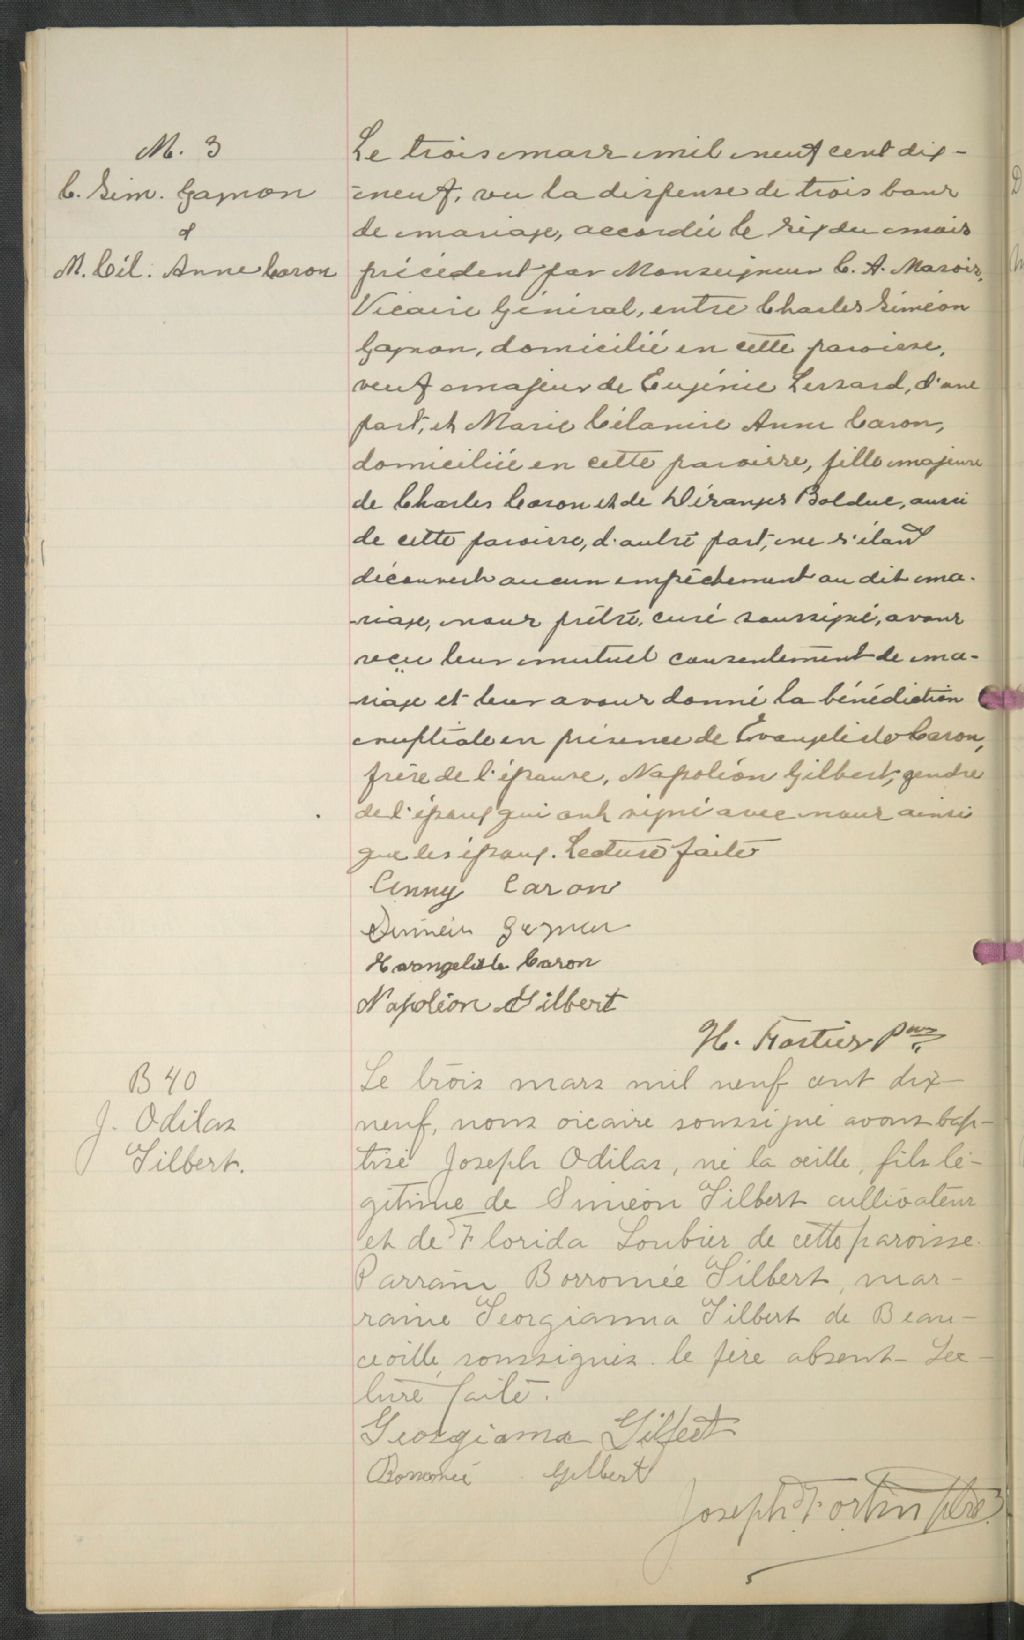 M. 3
C. Sim. Gagnon
&
M. Cél. Anne Caron
Le trois mars mil neuf cent dix-
-neuf, vu la dispense de trois bans
de mariage, accordée le six du mois
précédent par Monseigneur C. A. Marois,
Vicaire Général, entre Charles Siméon
Gagnon, domicilié en cette paroisse,
veuf majeur de Eugénie Lessard, d'une
part, et Marie Célanire Anne Caron,
domiciliée en cette paroisse, fille majeure
de Charles Caron et de Déranges Bolduc, aussi
de cette paroisse, d'autre part, ne s'étant
découvert aucun empêchement au dit ma-
-riage, nous prêtre, curé soussigné, avons
reçu leur mutuel consentement de ma-
-riage et leur avons donné la bénédiction
nuptiale en présence de Evangeliste Caron,
frère de l'épouse, Napoléon Gilbert, gendre
de l'époux qui ont signé avec nous ainsi
que les époux. Lecture faite
Anny Caron
Siméon Gagnon
Evangeliste Caron
Napoléon Gilbert
H. Fortier ptre
B 40
J. Odilas
Gilbert.
Le trois mars mil neuf cent dix-
neuf, nous vicaire soussigné avons bap-
tisé Joseph Odilas, né la veille, fils lé-
gitime de Siméon Gilbert cultivateur
et de Florida Loubier de cette paroisse.
Parrain Borromée Gilbert, mar-
raine Georgianna Gilbert de Beau-
ceville, soussignés. le père absent- Lec-
ture faite.
Georgianna Gilbert
Borromée Gilbert
Joseph T. Fortin ptre